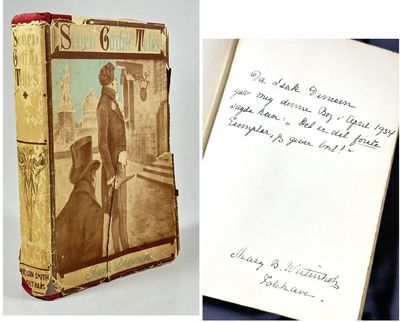 Seven
Gothic
Tales
Seven Gothic Tales
Isak Dinesen
SMITH
HAAS
Da Isak Dinesen
gav mig denne Bog i April 1934
sagde hun: „Det er det første
Exemplar, jeg giver bort!"
Mary B. Westenholz
Folehave.